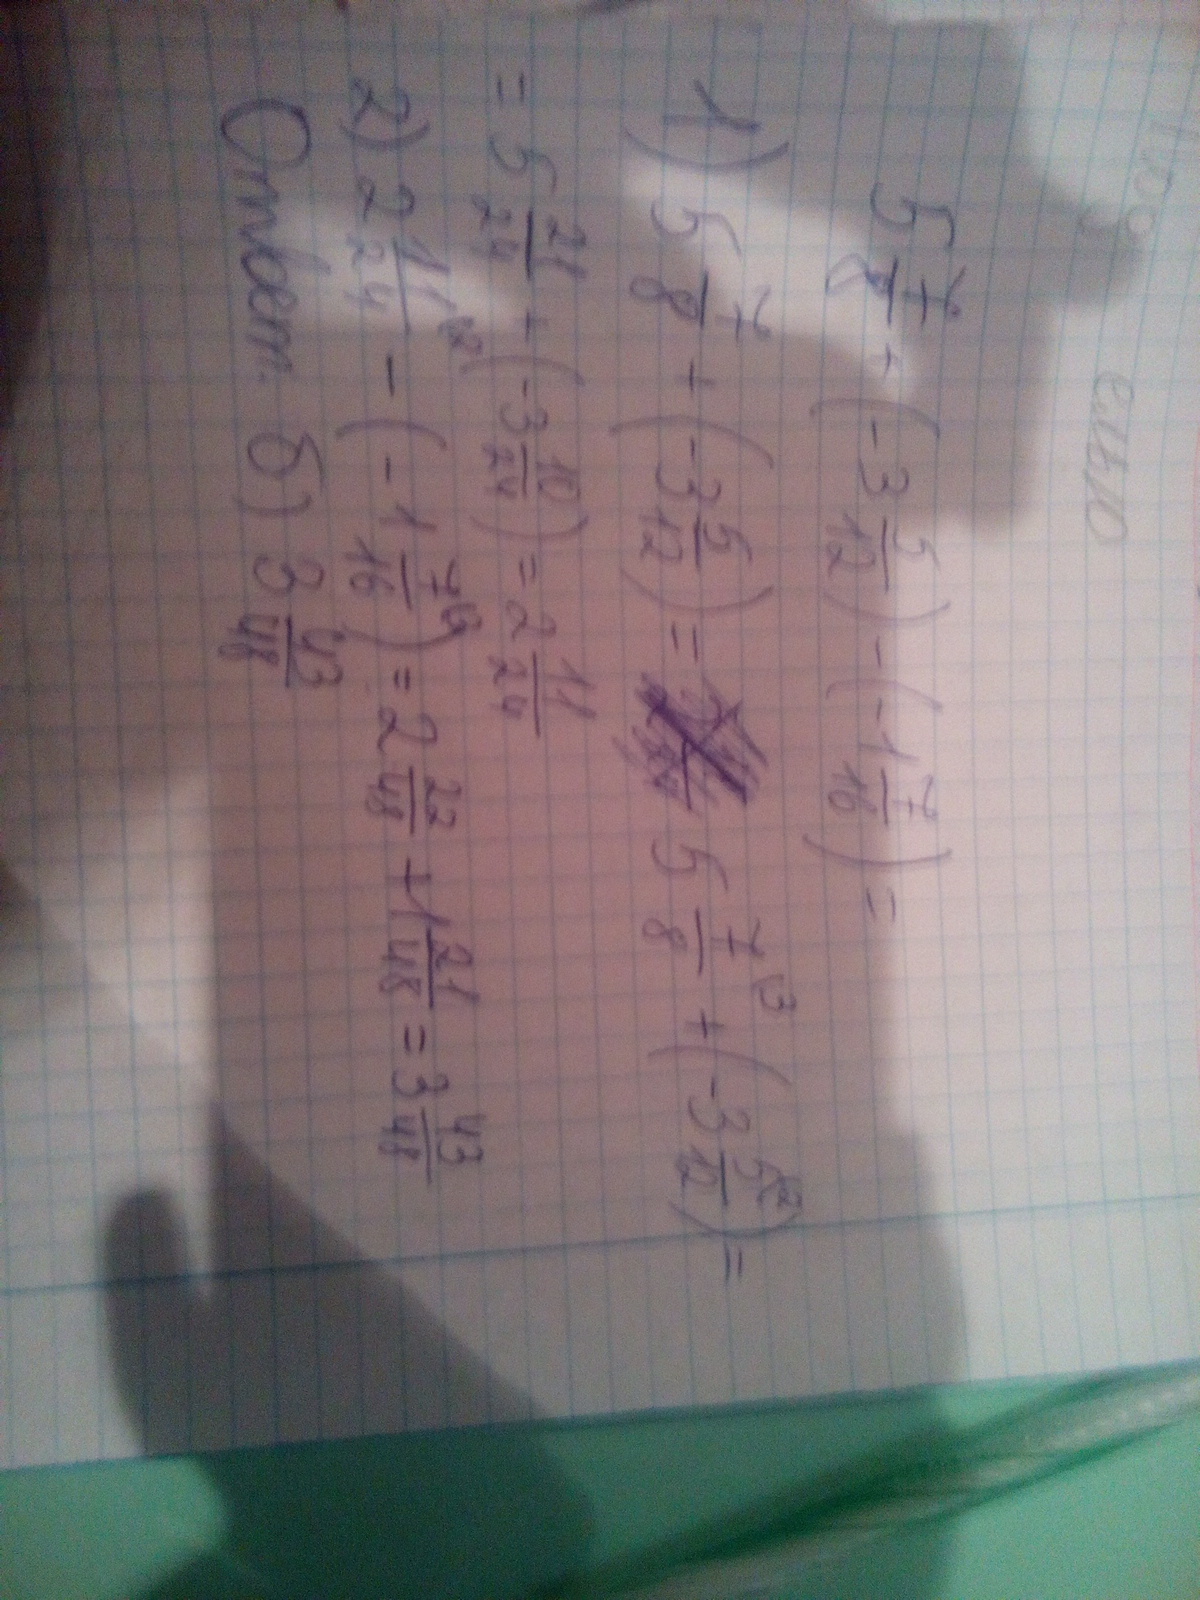 5 7/8 + (-3 5/12) - (-1 7/16) =
1) 5 7/8 + (-3 5/12) = 5 7/8 (3 + (-3 5/12 (2) =
= 5 21/24 + (-3 10/24) = 2 11/24
2) 2 11/24 (2 - (-1 7/16 (3) = 2 22/48 + 1 21/48 = 3 43/48
Ответ. б) 3 43/48